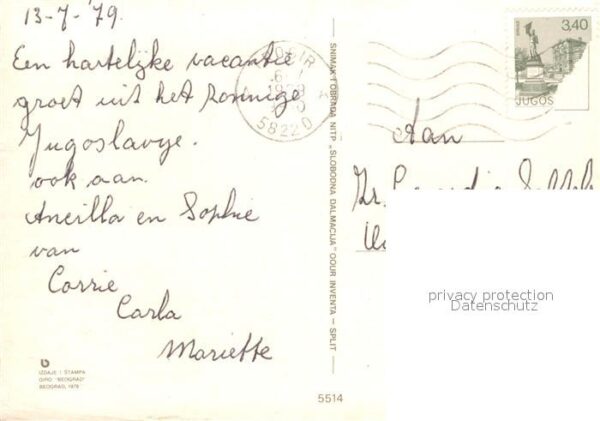 13-7-'79.
Een hartelijke vacantie
groet uit het zonnige
Jugoslavije.
ook aan.
Ancilla en Sophie
van
Corrie
Carla
Mariette
IZDAJE I ŠTAMPA
GIRO "BEOGRAD"
BEOGRAD, 1978
SNIMAK I OBRADA NITP „SLOBODNA DALMACIJA" OOUR INVENTA — SPLIT
5514
58220
3,40
JUGOS
Aan
Zr.
privacy protection
Datenschutz